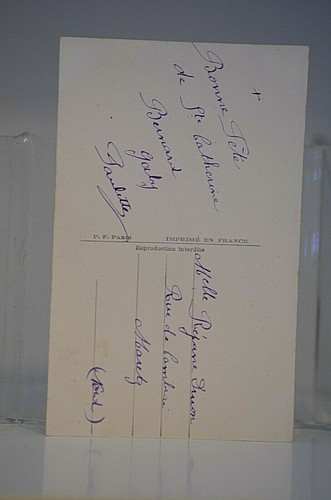 Bonne Fête
de Ste Catherine
Bernard
Gaby
Paulette
P. F. PARIS
IMPRIMÉ EN FRANCE
Reproduction interdite
Melle Réjane
Rue de Cambrai
Maretz
(Nord)